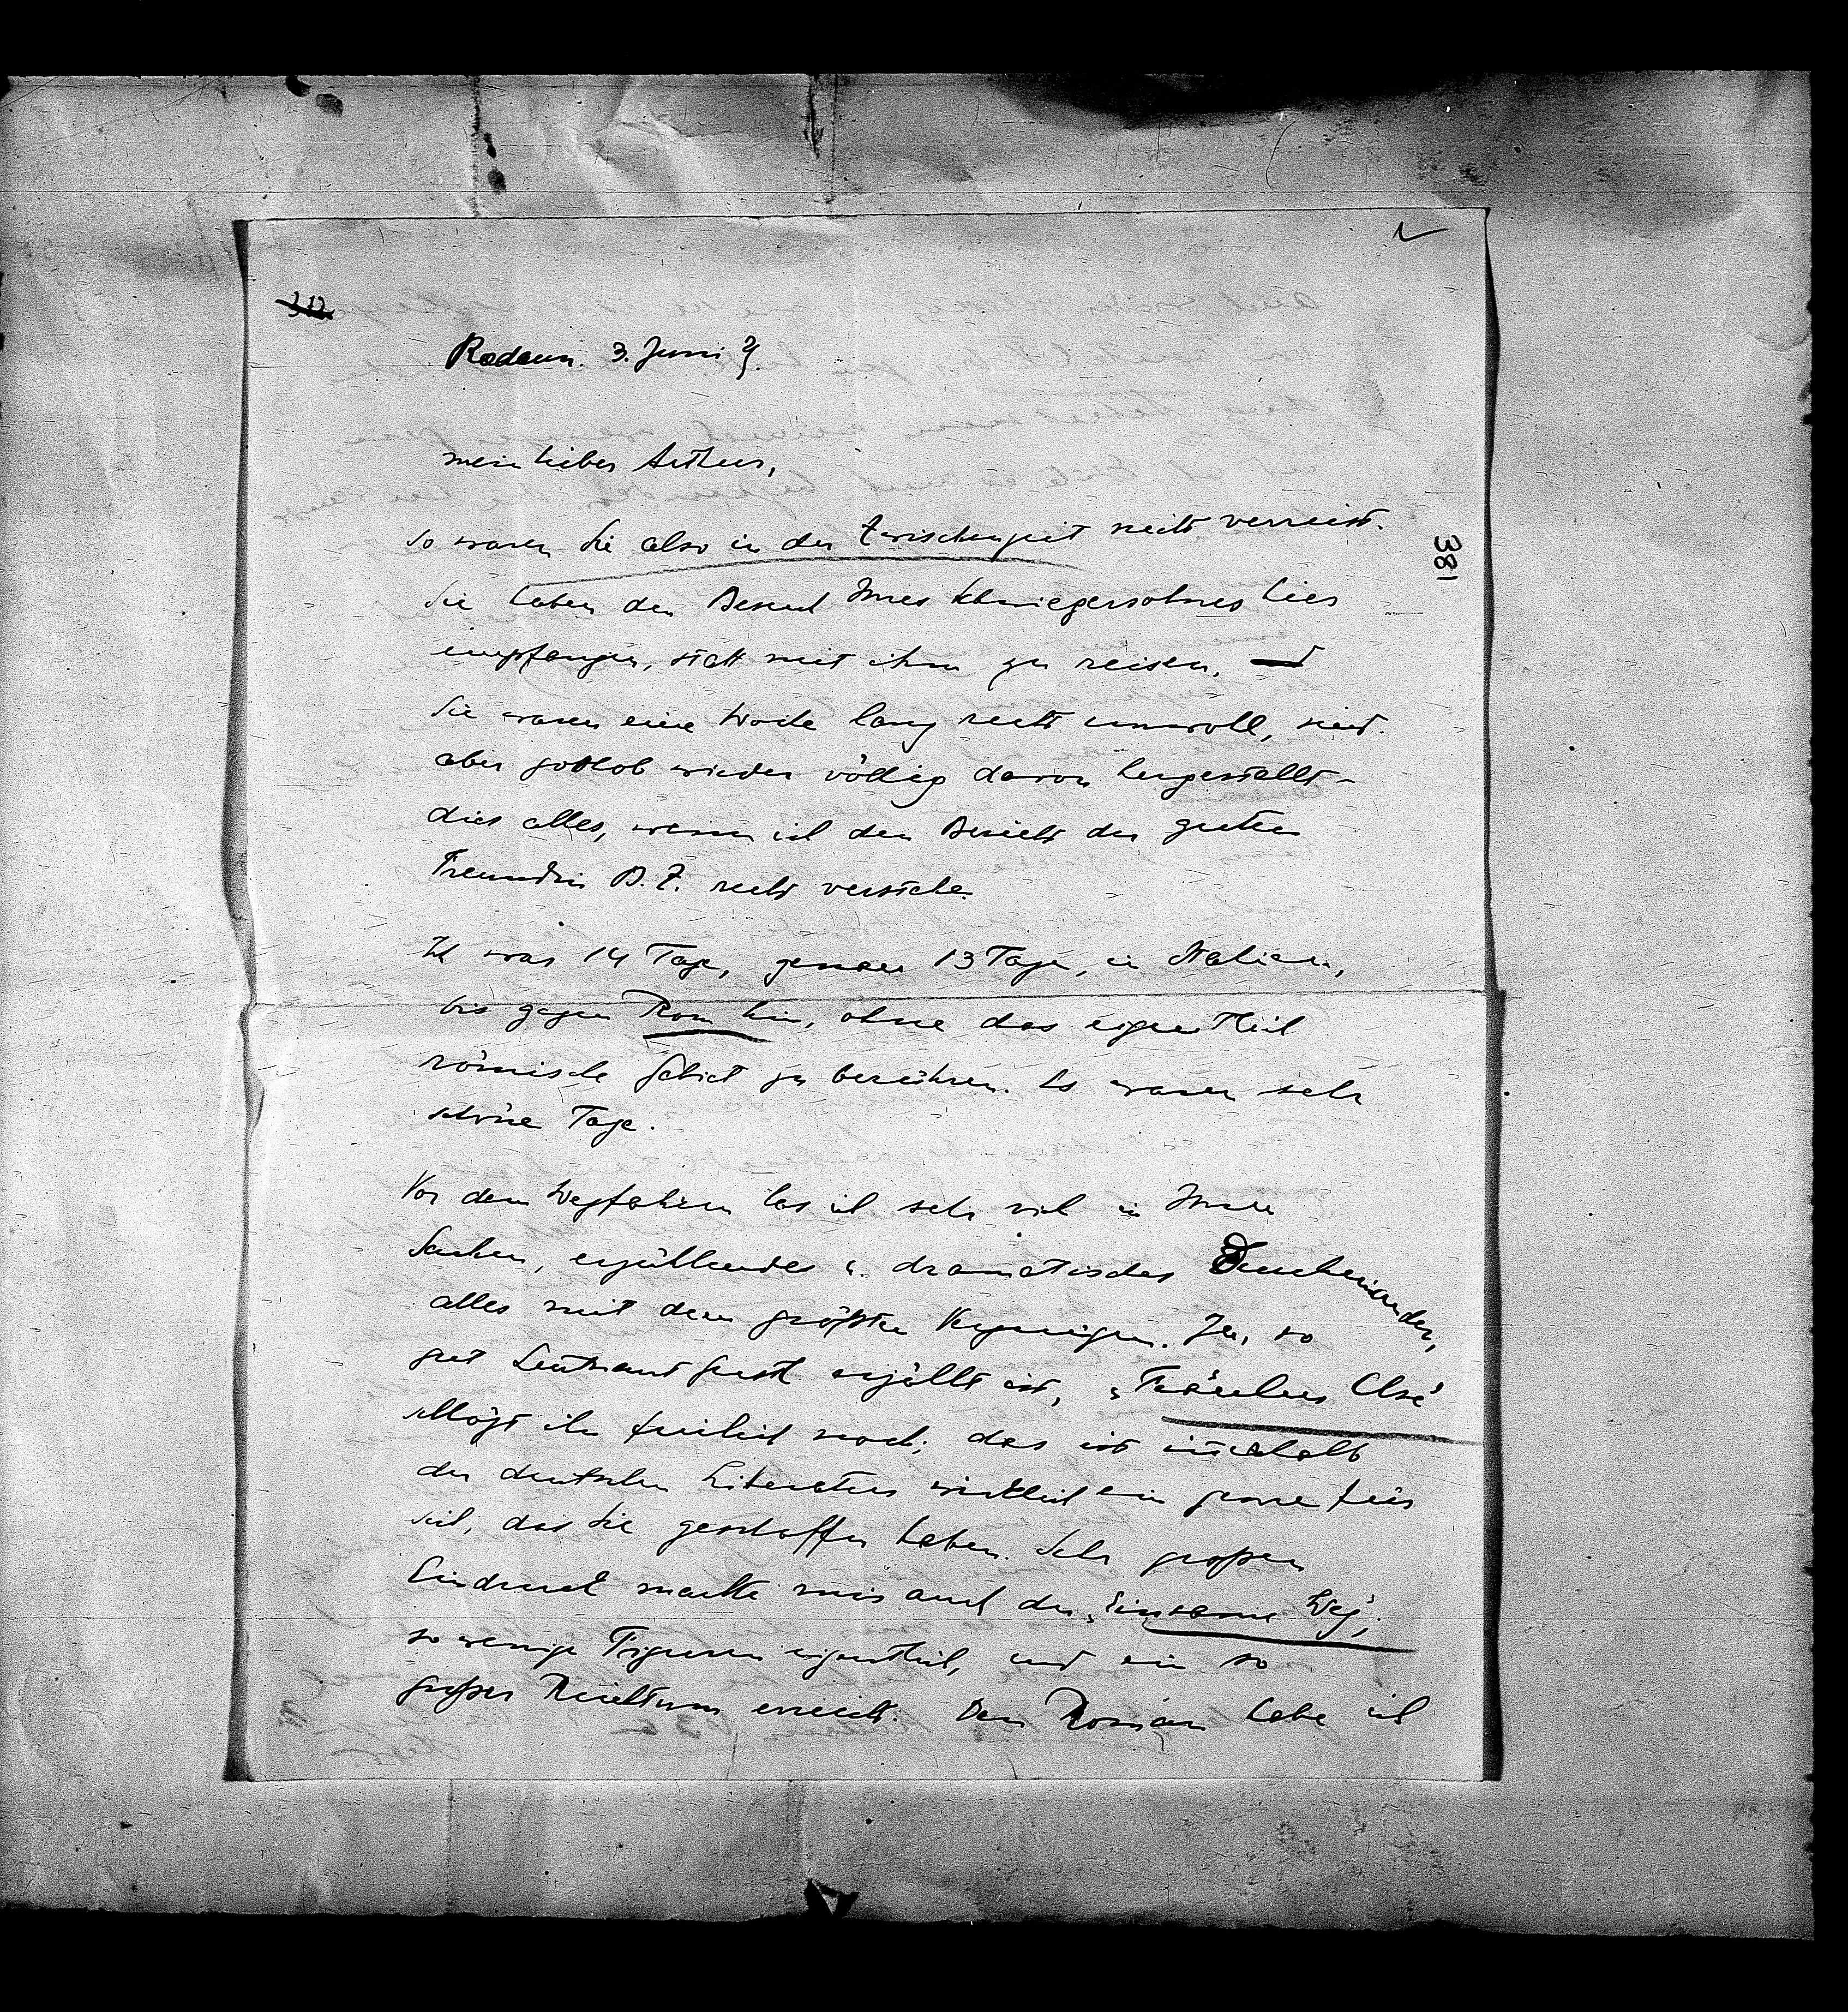 312.
Rodaun. 3. Juni 29.
381
mein lieber Arthur,
So waren Sie also in der Zwischenzeit nicht verreist.
Sie haben den Besuch Ihres Schwiegersohnes hier
empfangen, statt mit ihm zu reisen,
Sie waren eine Woche lang recht unwohl, sind
aber gottlob wieder völlig davon hergestellt –
dies alles, wenn ich den Bericht der guten
Freundin B. Z. recht verstehe.
Ich war 14 Tage, genau 13 Tage, in Italien,
bis gegen Rom hin, ohne das eigentlich
römische Gebiet zu berühren. Es waren sehr
schöne Tage.
Vor dem Wegfahren las ich sehr viel in Ihren
Sachen, erzählendes u. dramatisches Durcheinander,
alles mit dem größten Vergnügen. Ja, so
gut Leutnant Gustl erzählt ist, „Fräulein Else“
schlägt ihn freilich noch; das ist innerhalb
der deutschen Literatur wirklich ein genre für
sich, das Sie geschaffen haben. Sehr großen
Eindruck machte mir auch der „Einsame Weg“;
so wenige Figuren eigentlich, und ein so
großer Reichtum erreicht. Den Roman habe ich